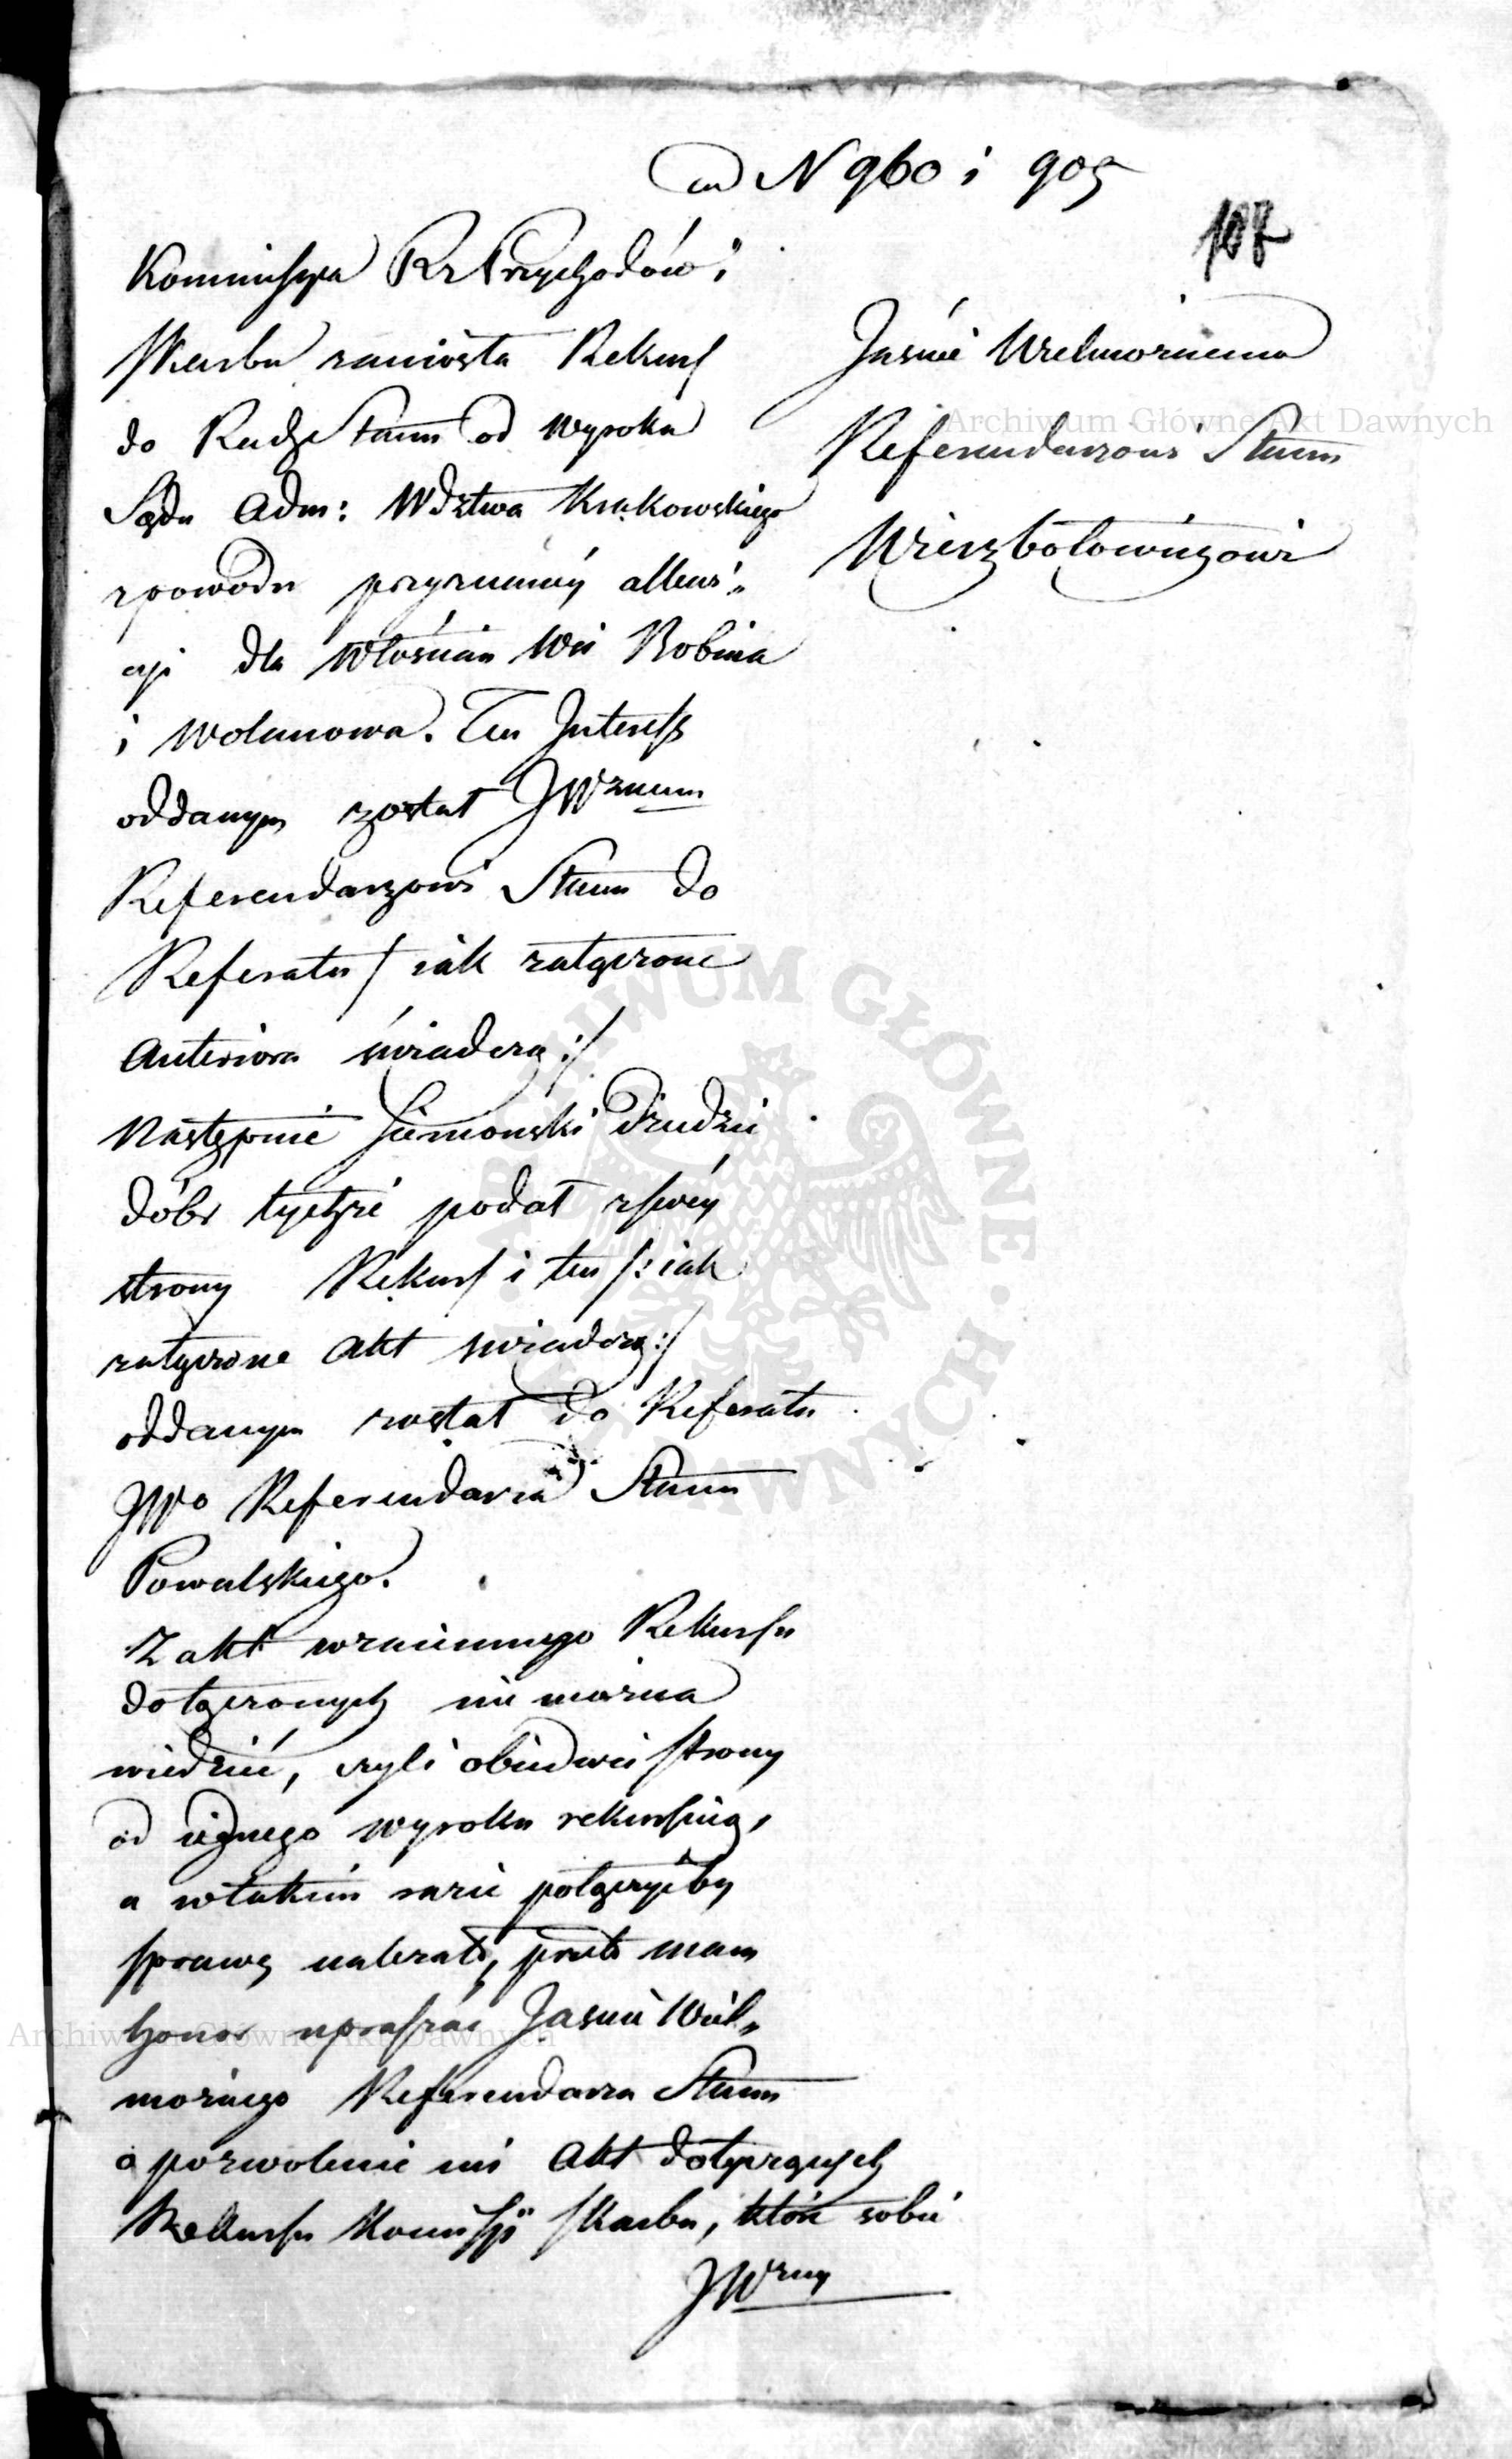 ad N 960 i 905
107
Kommissya Rz Przychodów i
Skarbu zaniosła Rekurs
do Rady Stanu od wyroku
Sądu Adm: Wdztwa Krakowskiego
z powodu przyznanéy
dla Włościan Wsi Robina
i Wolanowa. Ten Interess
oddanym został JWznemu
Referendarzowi Stanu do
Referatu /: iak załączone
Anteriora świadczą :/
Następnie Siemoński Dziedzic
dóbr tychże podał z swéy
strony Rekurs i ten /: iak
załączone Akt świadczą :/
oddanym został do Referatu
JWo Referendarza Stanu
Powalskiego.
Z akt wzaiemnego Rekursu
dołączonych nie można
wiedzieć, czyli obiedwie strony
od iednego wyroku rekursuią,
a w takim razie połączyćby
sprawę należało, przeto mam
honor upraszać Jaśnie Wiel„
możnego Referendarza Stanu
o pozwolenie mi Akt dotyczących
Rekursu Komissyi Skarbu, które sobie
JWzny
Jaśnie Wielmożnemu
Referendarzowi Stanu
Wierzbołowiczowi
Archiwum Główne Akt Dawnych
Archiwum Główne Akt Dawnych
ARCHIWUM GŁÓWNE AKT DAWNYCH